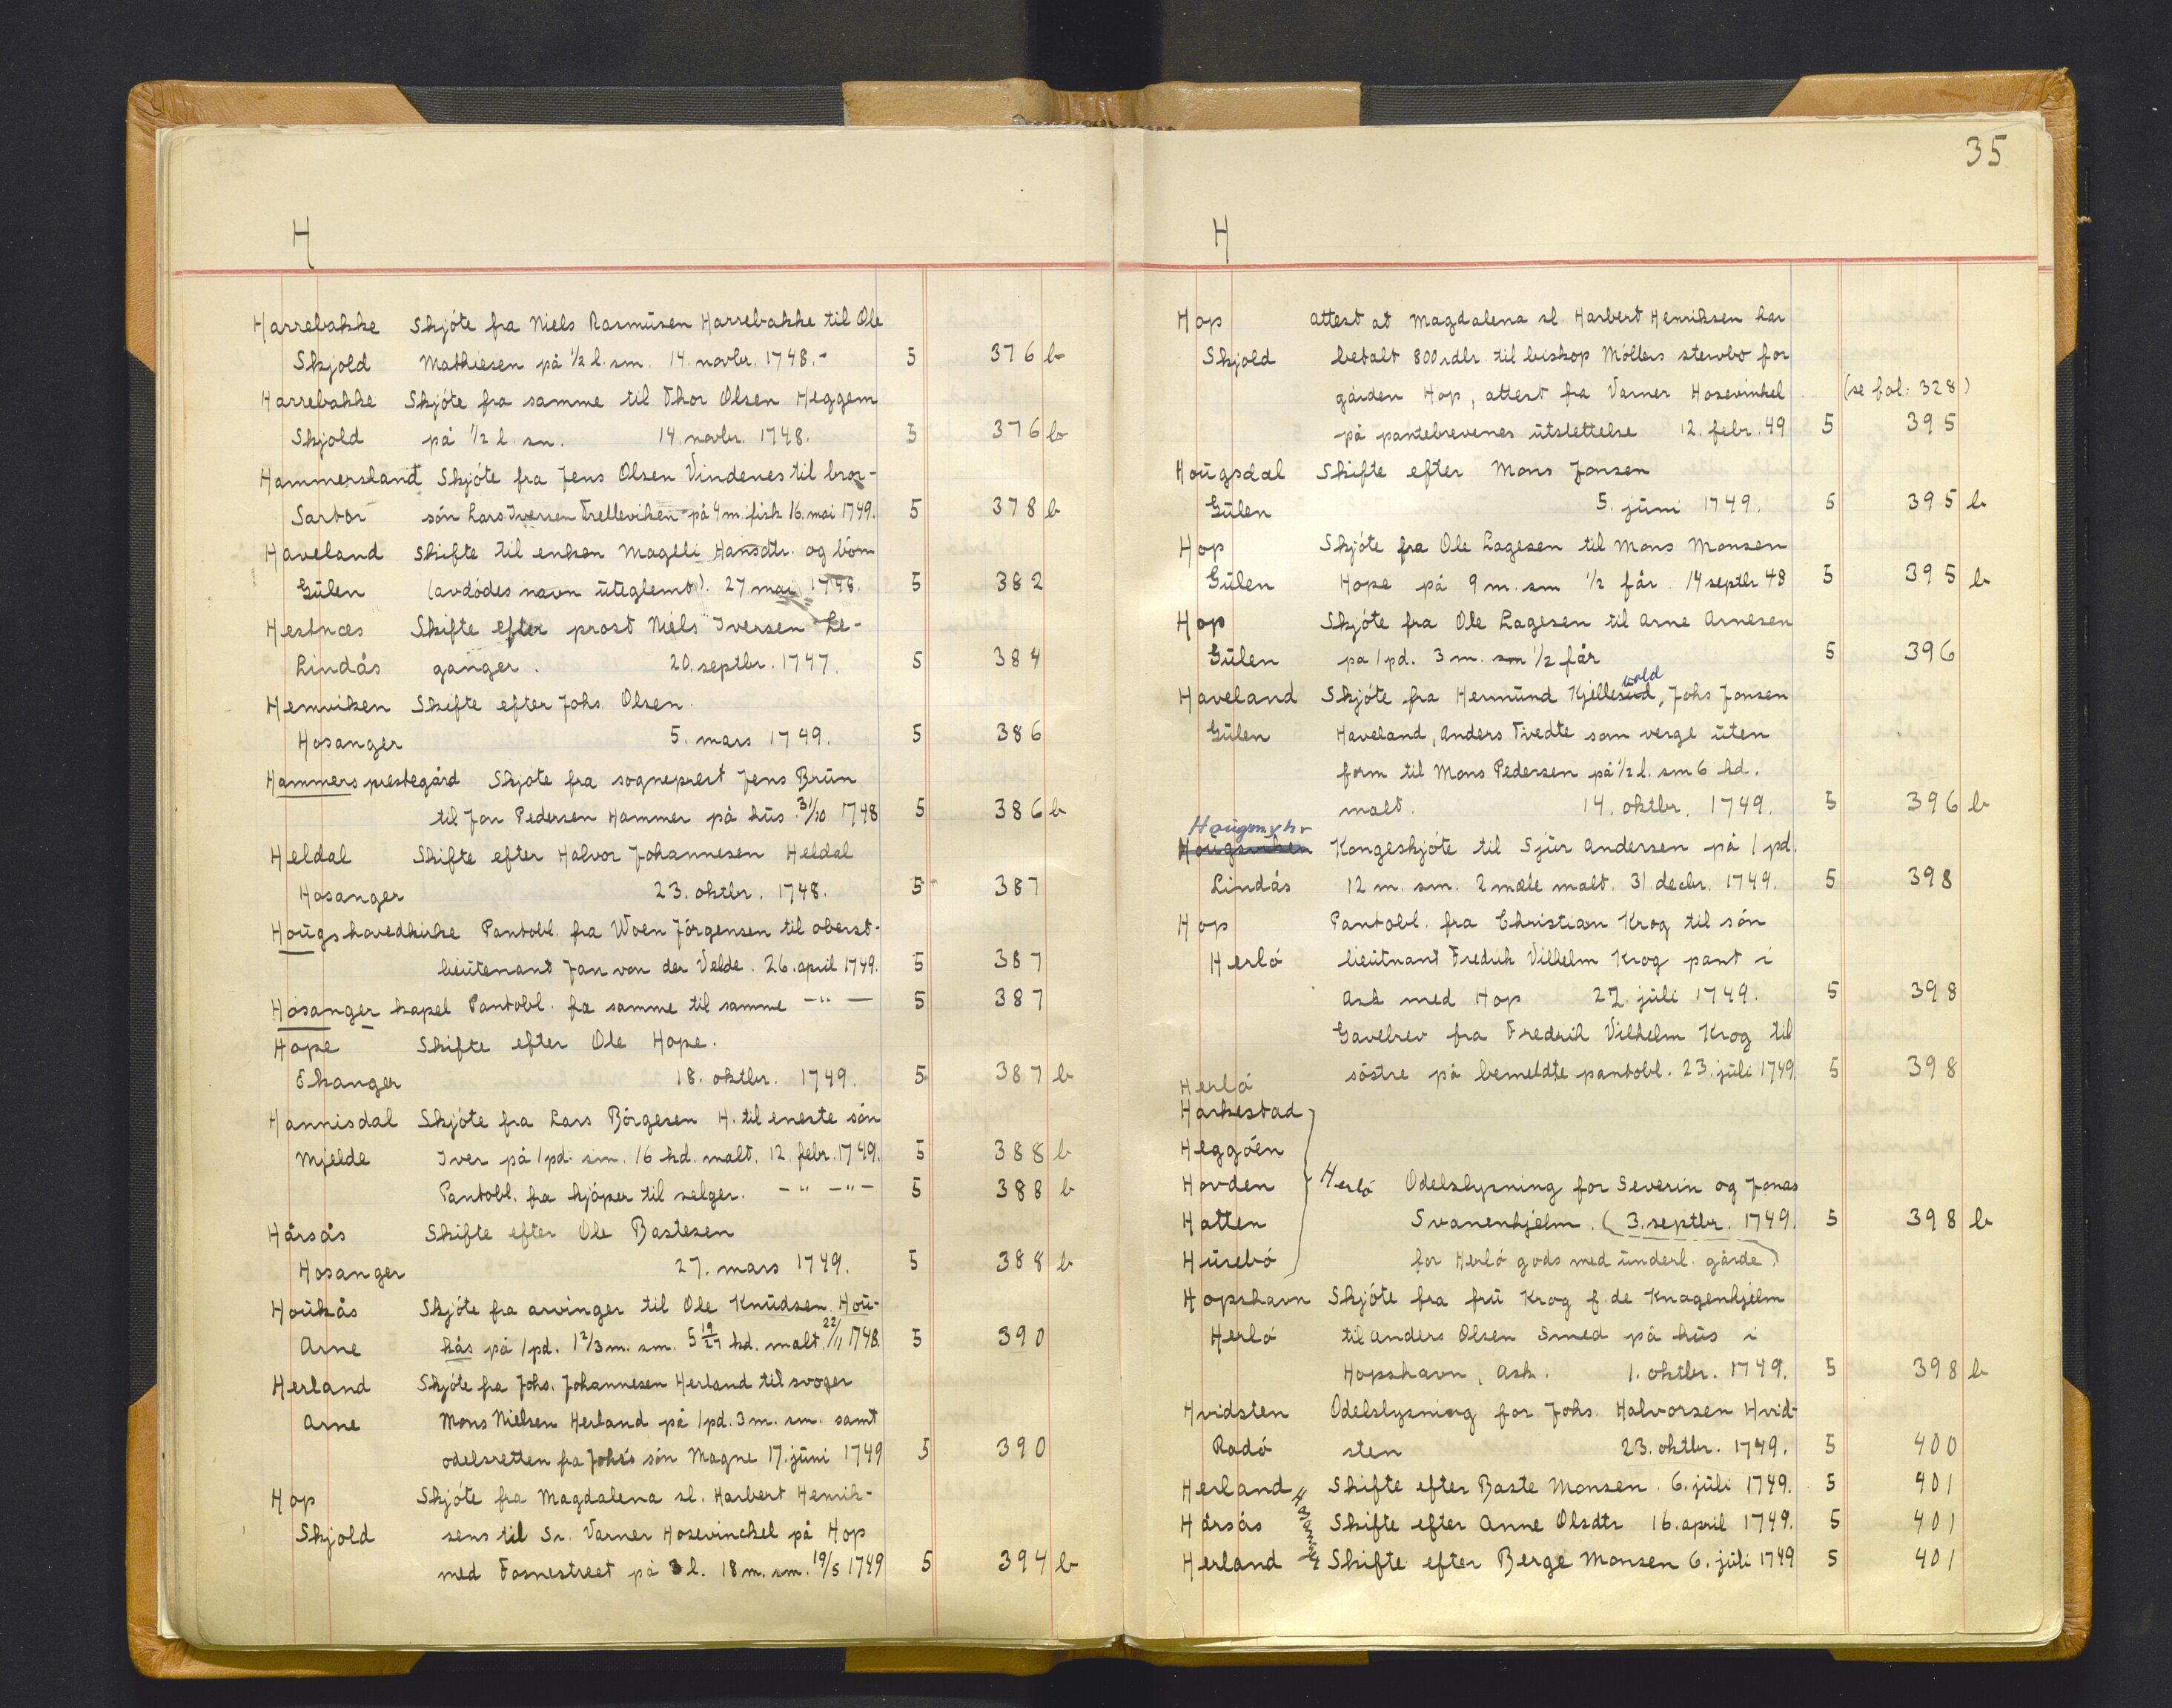 H
Harrebakke Skjöte fra Niels Rasmüsen Harrebakke til Ole
Skjold Mathiesen på ½ l. sm. 14. novbr. 1748. 5 376 b
Harrebakke Skjöte fra samme til Thor Olsen Heggem
Skjold på ½ l. sm. 14. novbr. 1748. 5 376 b
Hammersland Skjöte fra Jens Olsen Vindenes til bror-
Sartor sön Lars Iversen Trelleviken på 4 m. fisk 16. mai 1749. 5 378 b
Haveland Skifte til enken Mageli Hansdtr. og börn
Gülen (avdödes navn üteglemt). 27. mai 1748. 5 382
Hestnæs Skifte efter prost Niels Iversen Le-
Lindås ganger. 20. septbr. 1747. 5 384
Hemviken Skifte efter Johs. Olsen.
Hosanger 5. mars 1749. 5 386
Hammers prestegård Skjöte fra sogneprest Jens Brün
til Jon Pedersen Hammer på hüs. 31/10 1748 5 386 b
Heldal Skifte efter Halvor Johannesen Heldal
Hosanger 23. oktbr. 1748. 5 387
Hougs hovedkirke Pantobl. fra Woen Jörgensen til oberst-
lieütenant Jan von der Velde. 26. april 1749. 5 387
Hosanger kapel Pantobl. fra samme til samme -"- 5 387
Hope Skifte efter Ole Hope.
Ekanger 18. oktbr. 1749. 5 387 b
Hannisdal Skjöte fra Lars Börgesen H. til eneste sön
Mjelde Iver på 1 pd. sm. 16 kd. malt. 12. febr. 1749. 5 388 b
Pantobl. fra kjöper til selger. -"- -"- 5 388 b
Hårsås Skifte efter Ole Bastesen
Hosanger 27. mars 1749. 5 388 b
Houkås Skjöte fra arvinger til Ole Knüdsen Hoü-
Arne kås på 1 pd. 1 2/3 m. sm. 5 19/27 kd. malt. 22/11 1748. 5 390
Herland Skjöte fra Johs. Johannesen Herland til svoger
Arne Mons Nielsen Herland på 1 pd. 3 m. sm. samt
odelsretten fra Johs's sön Magne 17. jüni 1749 5 390
Hop Skjöte fra Magdalena sl. Harbert Henrik-
Skjold sens til Sr. Varner Hosevinckel på Hop
med Fosnestreet på 3 l. 18 m. sm. 19/5 1749 5 394 b
35
H
Hop Attest at Magdalena sl. Harbert Henriksen har
Skjold betalt 800 rdlr. til biskop Möllers stervbo for
gården Hop, attest fra Varner Hosevinkel (se fol: 328)
på pantebrevenes ütslettelse 12. febr. 49 5 395
Hoügsdal Skifte efter Mons Jonsen
Gülen 5. jüni 1749. 5 395 b
Hop Skjöte fra Ole Lagesen til Mons Monsen
Gülen Hope på 9 m. sm ½ får. 14 septbr 48 5 395 b
Hop Skjöte fra Ole Lagesen til Arne Arnesen
Gülen pa 1 pd. 3 m. sm ½ får 5 396
vold
Haveland Skjöte fra Hermünd Kjellesüd, Johs Jonsen
Gülen Haveland, Anders Tvedte som verge üten
form til Mons Pedersen på ½ l. sm 6 kd.
malt. 14. oktbr. 1749. 5 396 b
Hougsmyhr
Hoügsviken Kongeskjöte til Sjür Andersen på 1 pd.
Lindås 12 m. sm. 2 mæle malt. 31 decbr. 1749. 5 398
Hop Pantobl. fra Christian Krog til sön
Herlö lieütnant Fredrik Vilhelm Krog pant i
Ask med Hop 27. jüli 1749. 5 398
Gavebrev fra Fredrik Vilhelm Krog til
Herlö söstre på bemeldte pantobl. 23. jüli 1749. 5 398
Harkestad
Heggöen
Hovden Herlö Odelslysning for Severin og Jonas
Hatten Svanenhjelm. (3. septbr. 1749. 5 398 b
Hüsebö for Herlö gods med ünderl. gårde)
Hopshavn Skjöte fra frü Krog f. de Knagenhjelm
Herlö til Anders Olsen Smed på hüs i
Hopshavn, Ask. 1. oktbr. 1749. 5 398 b
Hvidsten Odelslysning for Johs. Halvorsen Hvid-
Radö sten 23. oktbr. 1749. 5 400
Herland Skifte efter Baste Monsen. 6. jüli 1749. 5 401
Hårsås Hosanger Skifte efter Anne Olsdtr 16. april 1749. 5 401
Herland Skifte efter Berge Monsen 6. jüli 1749 5 401